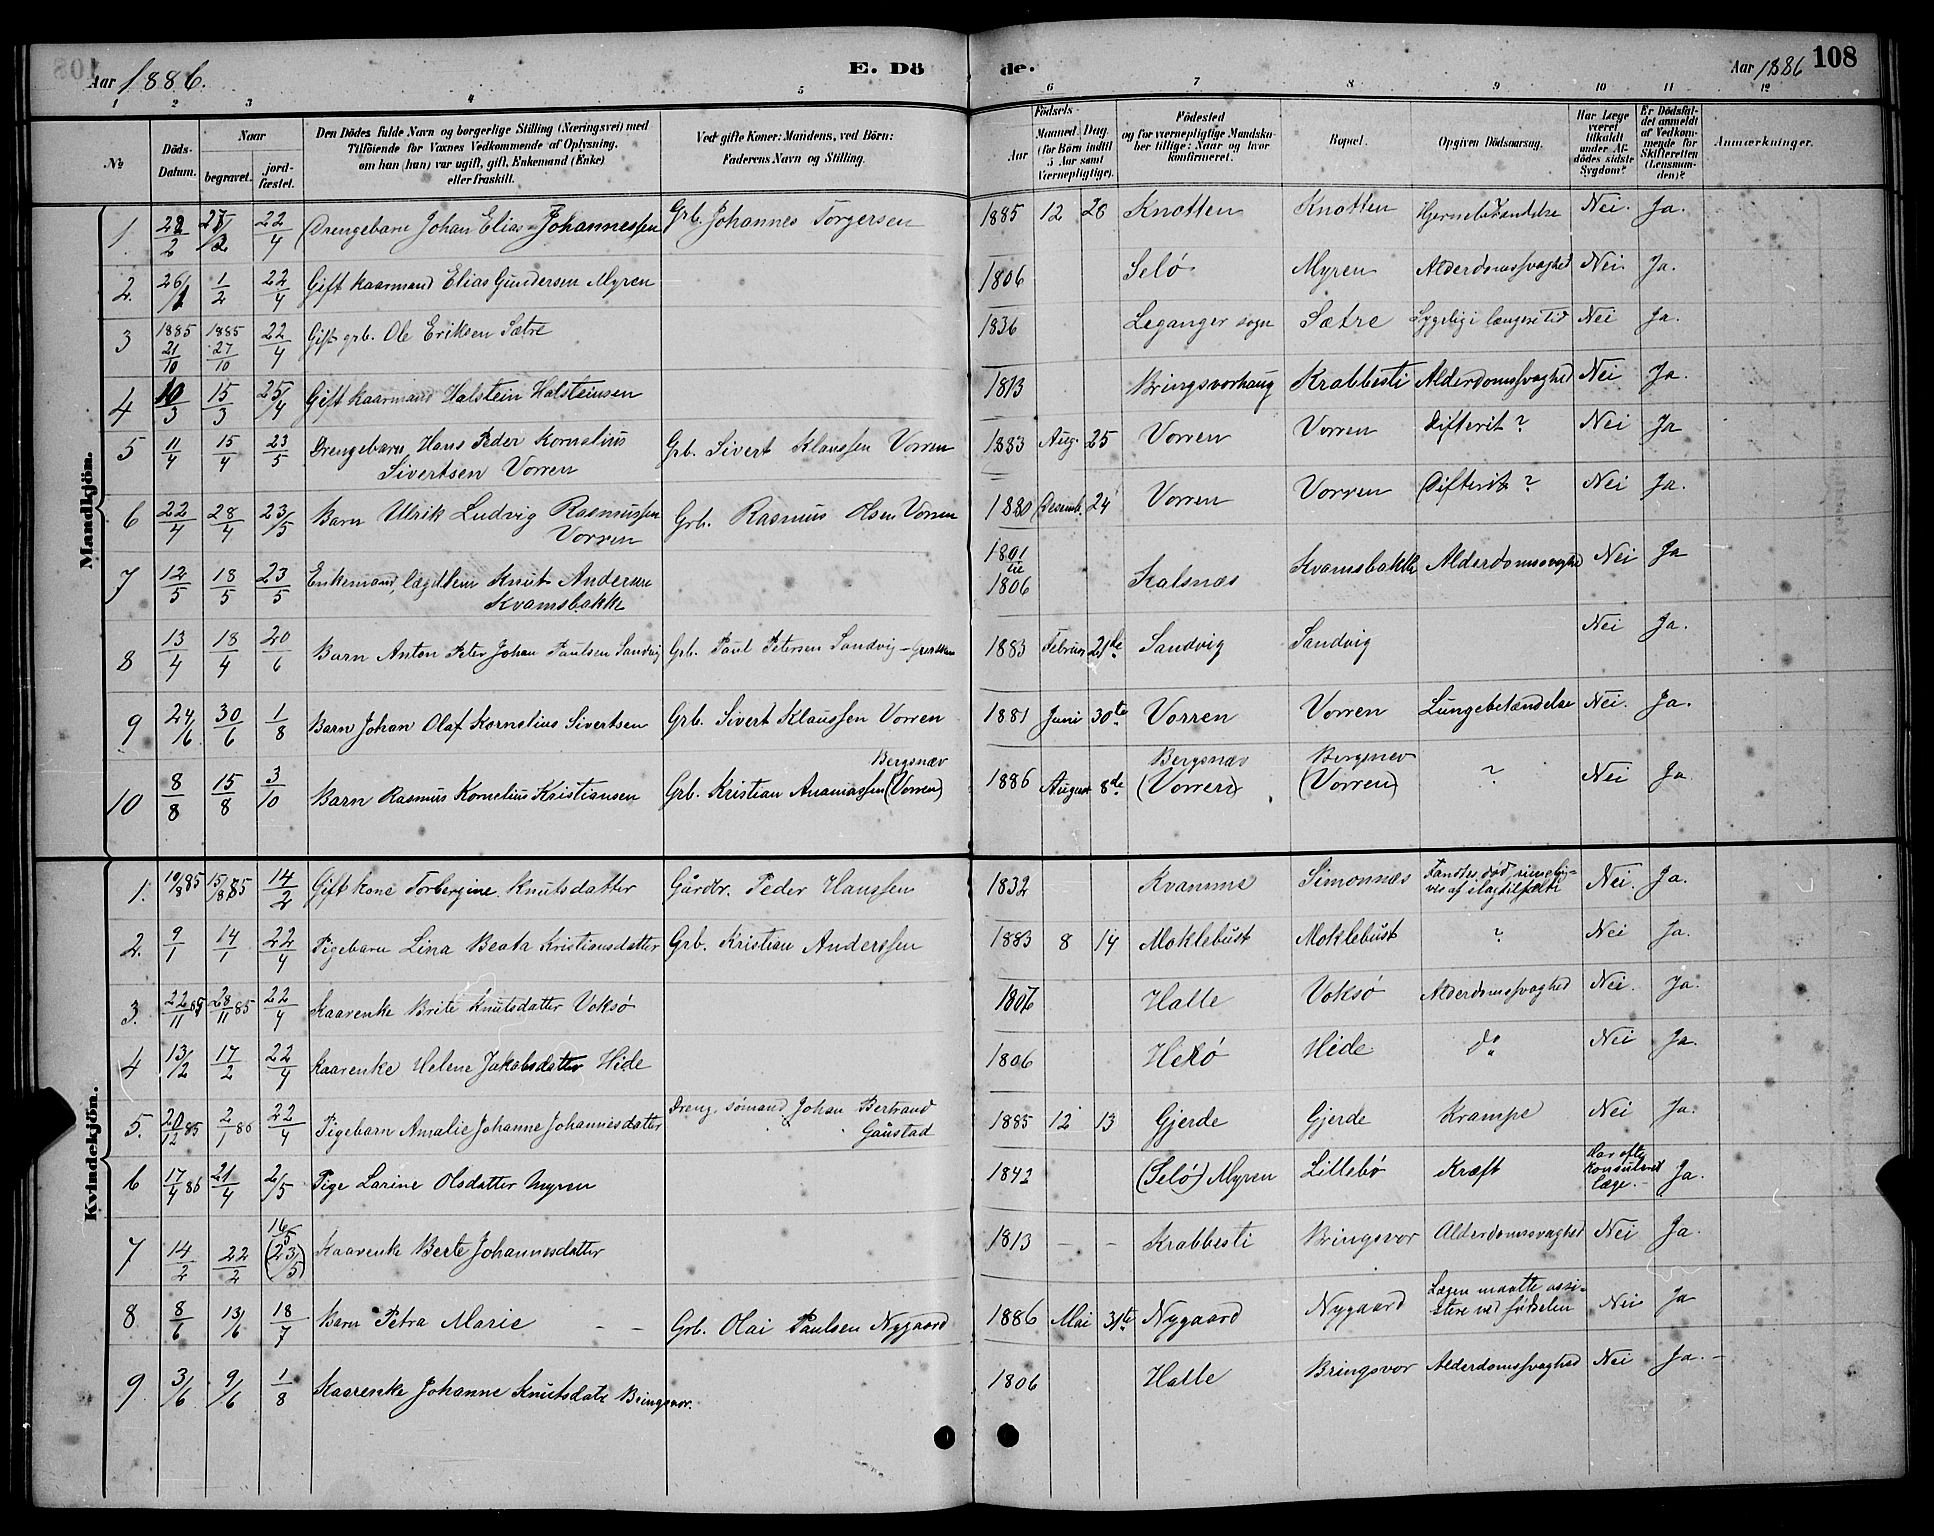 Aar 1886.
E. Dö
de.
Aar 1886
108
1 2 3 4 5 6 7 8 9 10 11 12
No
Döds-Datum.
Naar
begravet.
jord-fæstet.
Den Dödes fulde Navn og borgerlige Stilling (Næringsvei) med
Tilföiende for Voxnes Vedkommende af Oplysning,
om han (hun) var ugift, gift, Enkemand (Enke)
eller fraskilt.
Ved gifte Koner: Mandens, ved Börn:
Faderens Navn og Stilling.
Födsels-
Aar
Maaned
(for Börn indtil
5 Aar samt
Værnepligtige).
Dag
Födested
og for værnepligtige Mandska-
ber tillige: Naar og hvor
konfirmeret.
Bopæl.
Opgiven Dödsaarsag.
Har Læge
været
tilkaldt
under Af-
dödes sidste
Sygdom?
Er Dödsfal-
det anmeldt
af Vedkom-
mende for
Skifteretten
(Lensman-
den)?
Anmærkninger.
Mandkjön.
1 22/2 27/2 22/4 Drengebarn Johan Elias Johannessen Grb. Johannes Torgersen 1885 12 26 Knotten Knotten Hjernebetændelse Nei. Ja.
2. 26/1 1/2 22/4 Gift kaarmand Elias Gundersen Myren 1806 Selø Myren Alderdomssvaghed Nei. Ja.
3 1885 21/10 1885 27/10 22/4 Gift grb. Ole Eriksen Sætre 1836 Leganger sogn Sætre Sygelig i længere tid Nei Ja.
4 10/3 15/3 25/4 Gift kaarmand Halstein Halsteinsen 1813 Bringsvorhaug Krabbesti Alderdomssvaghed Nei Ja.
5 11/4 15/4 23/5 Drengebarn Hans Peder Kornelius
Sivertsen Vorren Grb. Sivert Klaussen Vorren 1883 Aug. 25 Vorren Vorren Difterit? Nei Ja
6 22/4 28/4 23/5 Barn Ulrik Ludvig Rasmussen
Vorren Grb. Rasmus Olsen Vorren 1880 Desemb. 24 Vorren Vorren Difterit? Nei Ja.
7 12/5 18/5 23/5 Enkemand, lægdlem Knut Andersen
Kvamsbakke 1801 til 1806 Kalsnæs Kvamsbakke Alderdomssvaghed Nei Ja
8 13/4 18/4 20/6 Barn Anton Peter Johan Paulsen Sandvig Grb. Paul Petersen Sandvig 1883 Februar 21de Sandvig Sandvig Nei Ja.
9 24/6 30/6 1/8 Barn Johan Olaf Kornelius Sivertsen Grb. Sivert Klaussen Vorren 1881 Juni 30te Vorren Vorren Lungebetændelse Nei. Ja.
10 8/8 15/8 3/10 Barn Rasmus Kornelius Kristiansen Grb. Kristian Ananiassen Bergsnæv (Vorren) 1886 August 8de Bergsnæv (Vorren) Bergsnev (Vorren) ? Nei Ja.
Kvindekjön.
1. 10/8 85 15/8 85 14/2 Gift kone Torbergine Knutsdatter Gårdbr. Peder Hanssen 1832 Kvamme Simonnæs Fandtes død rimelig-
vis af slagtilfælde Nei. Ja.
2. 9/1 14/1 22/4 Pigebarn Lina Beata Kristiansdatter Grb. Kristian Anderssen 1883 8 14 Moklebust Moklebust ? Nei Ja.
3. 22/11 85 28/11 85 22/4 Kaarenke Brite Knutsdatter Voksø 1806 Halle Voksø Alderdomssvaghed Nei. Ja.
4 13/2 17/2 22/4 Kaarenke Helene Jakobsdatter Hide 1806 Herø Hide do Nei Ja.
5. 20/12 85 2/1 86 22/4 Pigebarn Amalie Johanne Johannesdatter Dreng, sømand Johan Bertrand
Gåustad 1885 12 13 Gjerde Gjerde Krampe Nei Ja.
6 17/4 86 21/4 2/5 Pige Larine Olsdatter Myren 1842 (Selø) Myren Lillebø Kræft Har ofte
konsuleret
læge. Ja.
7 14/2 22/2 16/5 (23/5) Kaarenke Berte Johannesdatter 1813 – – Krabbesti Bringsvor Alderdomssvaghed Nei Ja.
8 8/6 13/6 18/7 Barn Petra Marie – – Grb. Olai Paulsen Nygaard 1886 Mai 31te Nygaard Nygaard Lægen maatte assi-
stere ved fødselen Nei Ja
9 3/6 9/6 1/8 Kaarenke Johanne Knutsdatr Bringsvor. 1806 Halle Bringsvor Alderdomssvaghed Nei Ja. –